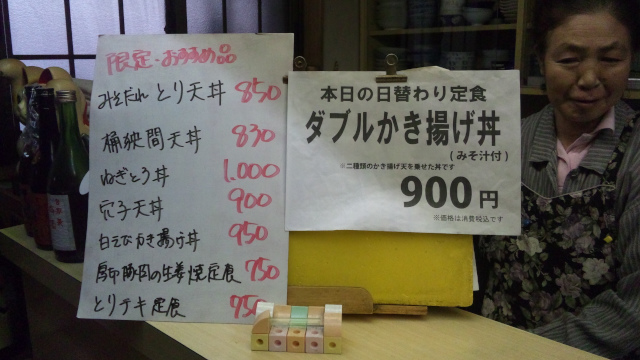 限定・おすすめ品
みそだれ とり天丼 850
桶狭間天丼 830
ねぎとろ丼 1.000
穴子天丼 900
白えびかき揚げ丼 950
豚肉の生姜焼定食 750
とりテキ定食 750
本日の日替わり定食
ダブルかき揚げ丼
(みそ汁付)
※二種類のかき揚げ天を乗せた丼です
900円
※価格は消費税込です